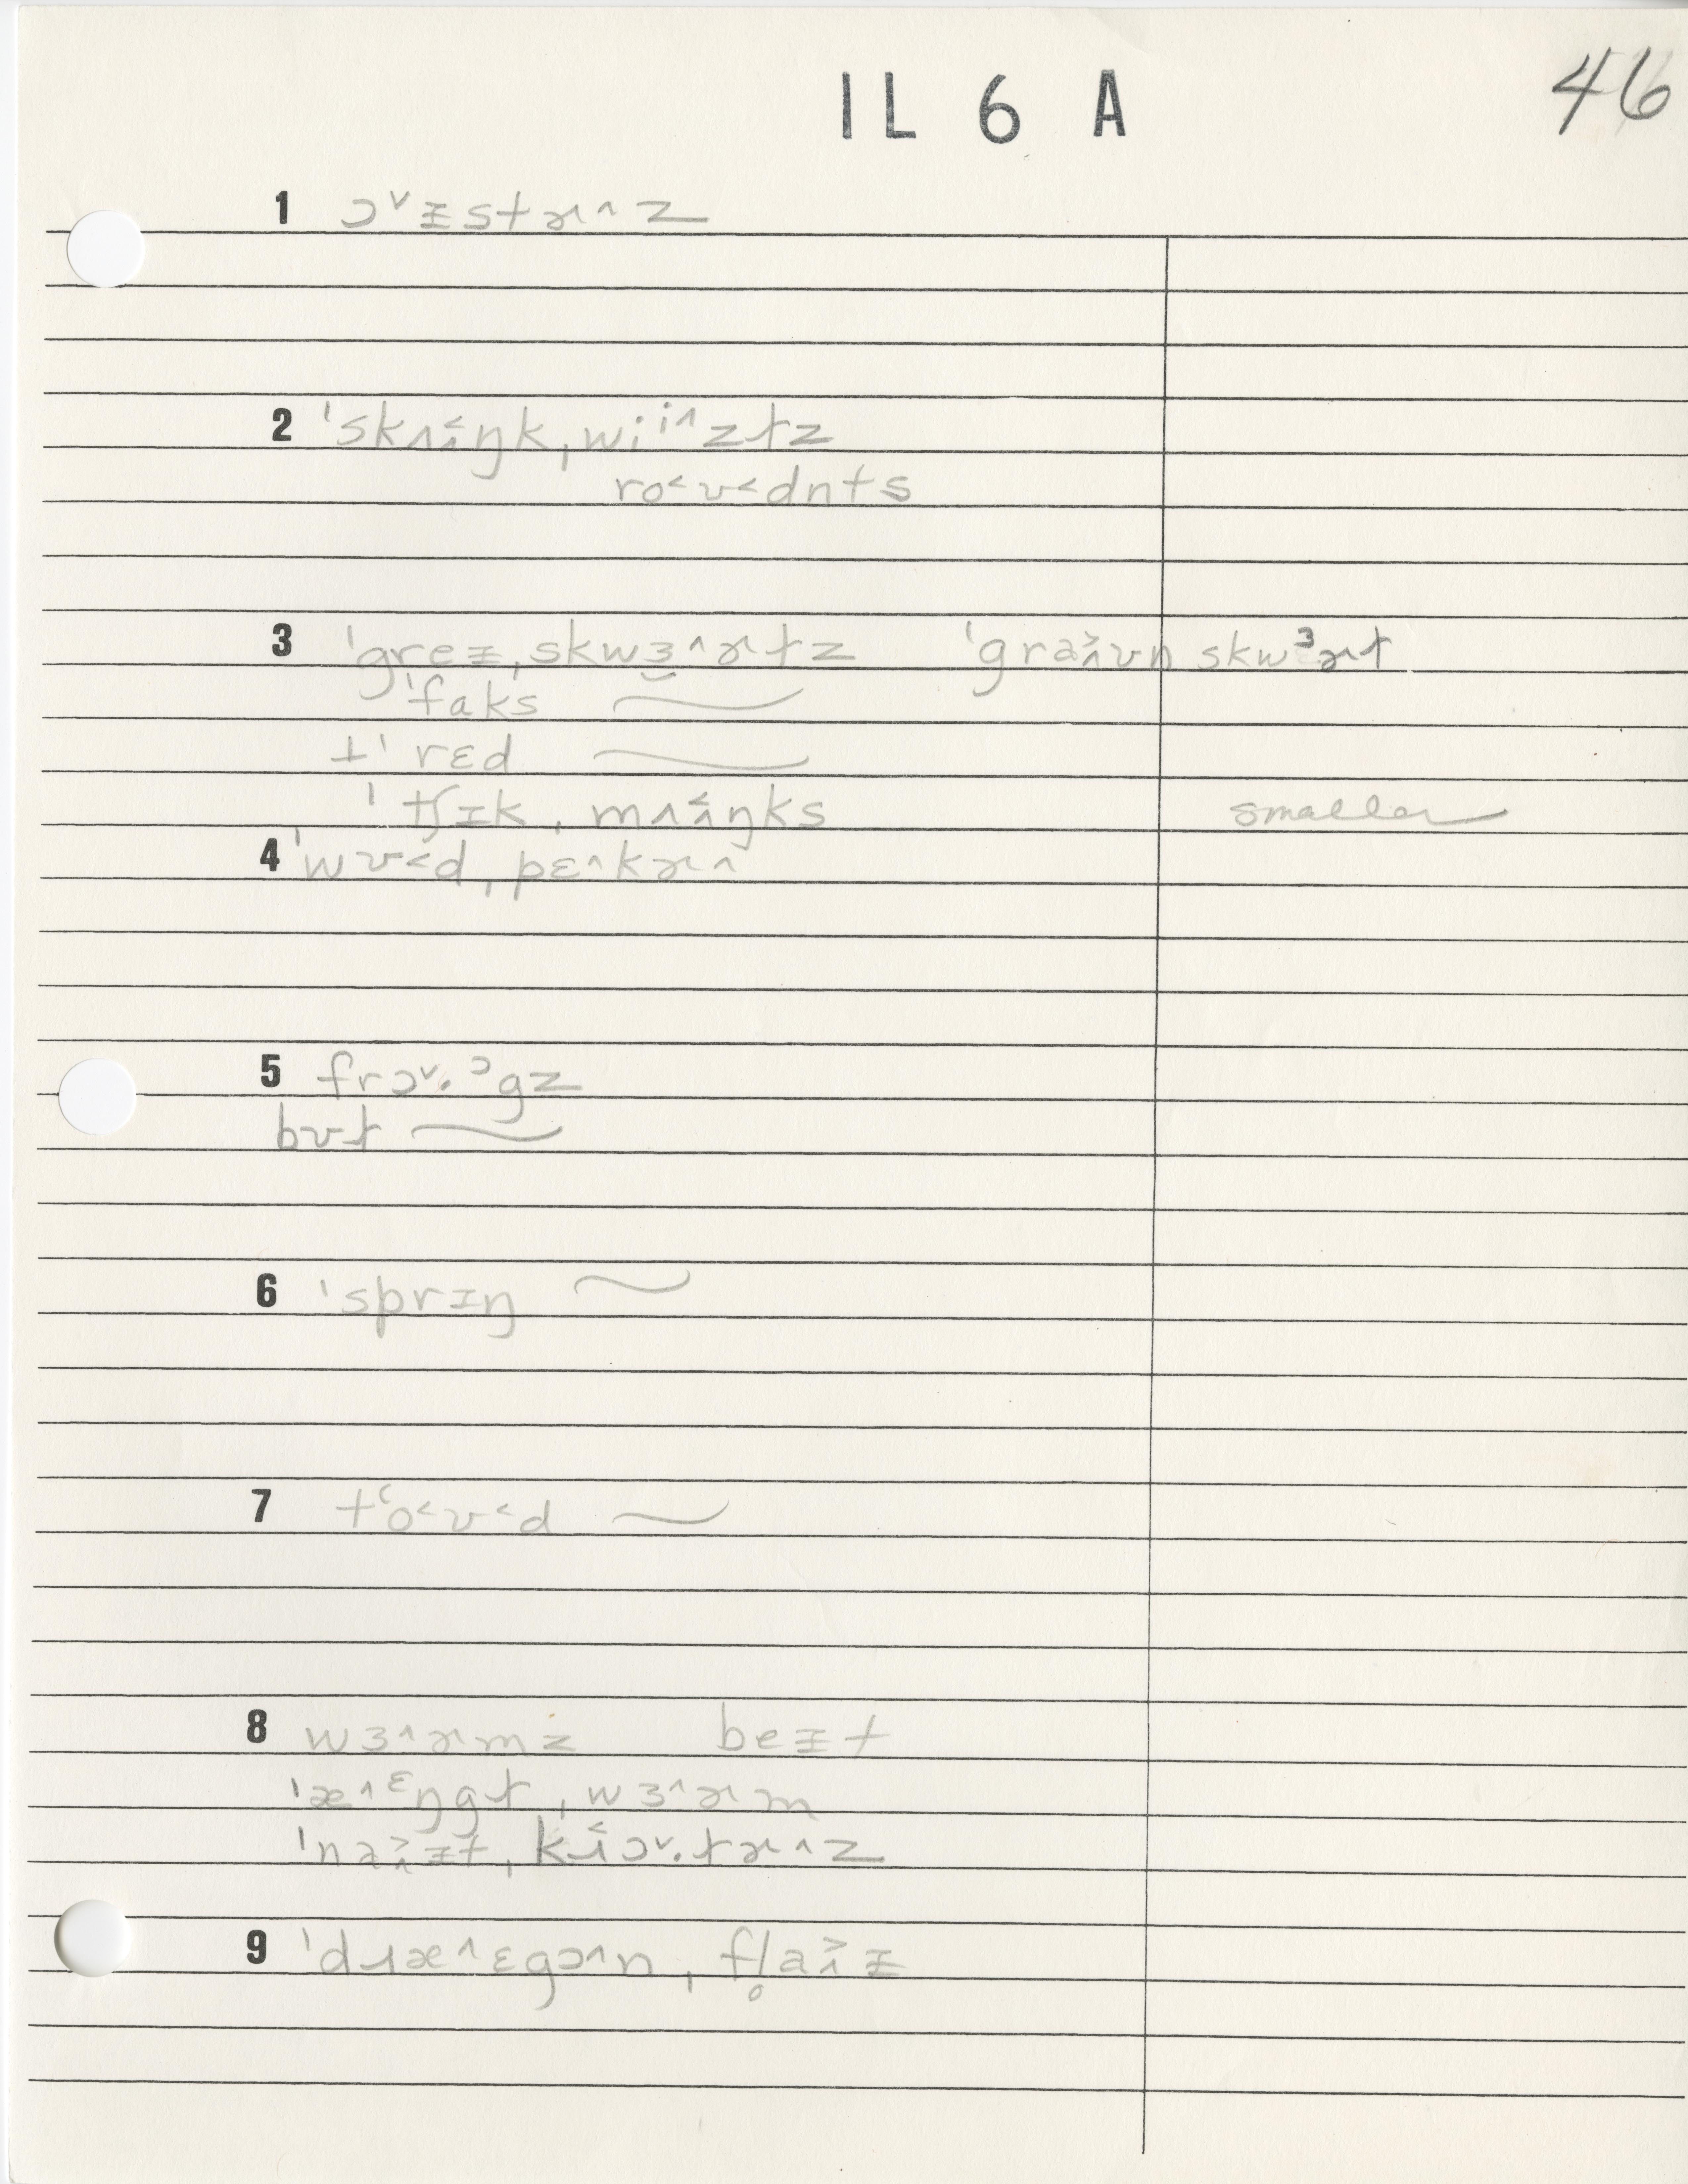 IL 6 A 46
1 ɔ˅ɪstɚ˄z
2 ˈskʌ˂ɨ̯ŋk ˌwiⁱ˄zɫz
ro˂ʊ˂dnts
3 ˈgreɪ ˌskwɜ˄ɚɫz ˈgra˃˄ʊn skwᶟɚɫ
ˈfaks ~
+ˈ rɛd ~
ˈtʃɪk ˌmʌ˂ɨŋks smaller
4 ˈwʊ˂d ˌpɛ˄kɚ˄
5 frɔ˅·ᵓgz
bʊɫ ~
6 ˈsprɪŋ ~
7 tʻo˂ʊ˂d ~
8 wɜ˄ɚmz beɪt
ˈæ˄ᵋŋgɫ ˌwɜ˄ɚm
ˈna˃˄ɪt ˌkɹɔ˅·ɫɚ˄z
9 ˈdɹæ˄ɛgɔ˄n ˌfl̥a˃˄ɪ